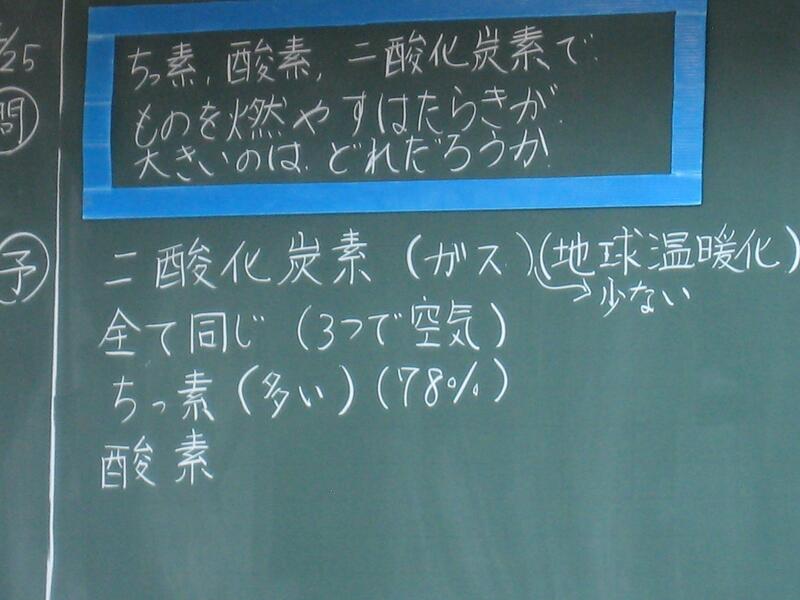 /25
問
ちっ素,酸素,二酸化炭素で
ものを燃やすはたらきが
大きいのは.どれだろうか
予
二酸化炭素(ガス)(地球温暖化)
→少ない
全て同じ(3つで空気)
ちっ素(多い)(78%)
酸素